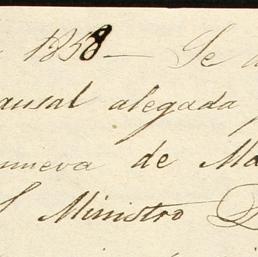 1858 — Se a
ausal alegada
nueva de Ma
S Ministro D